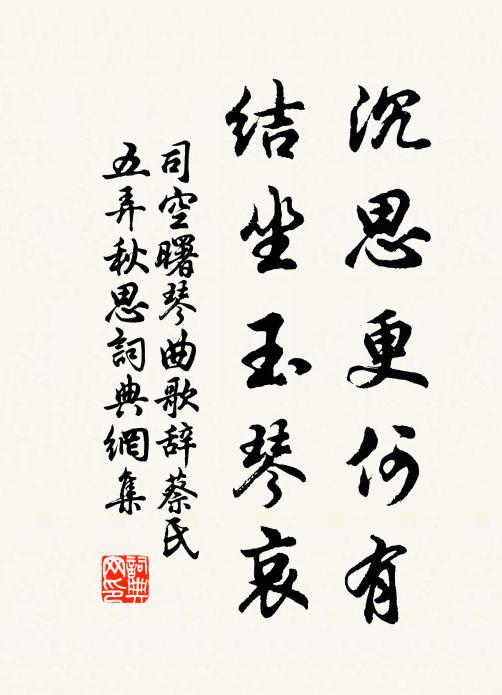 沉思更何有
结坐玉琴哀
司空曙琴曲歌辞蔡氏
五弄秋思詞典網集
詞典
网印